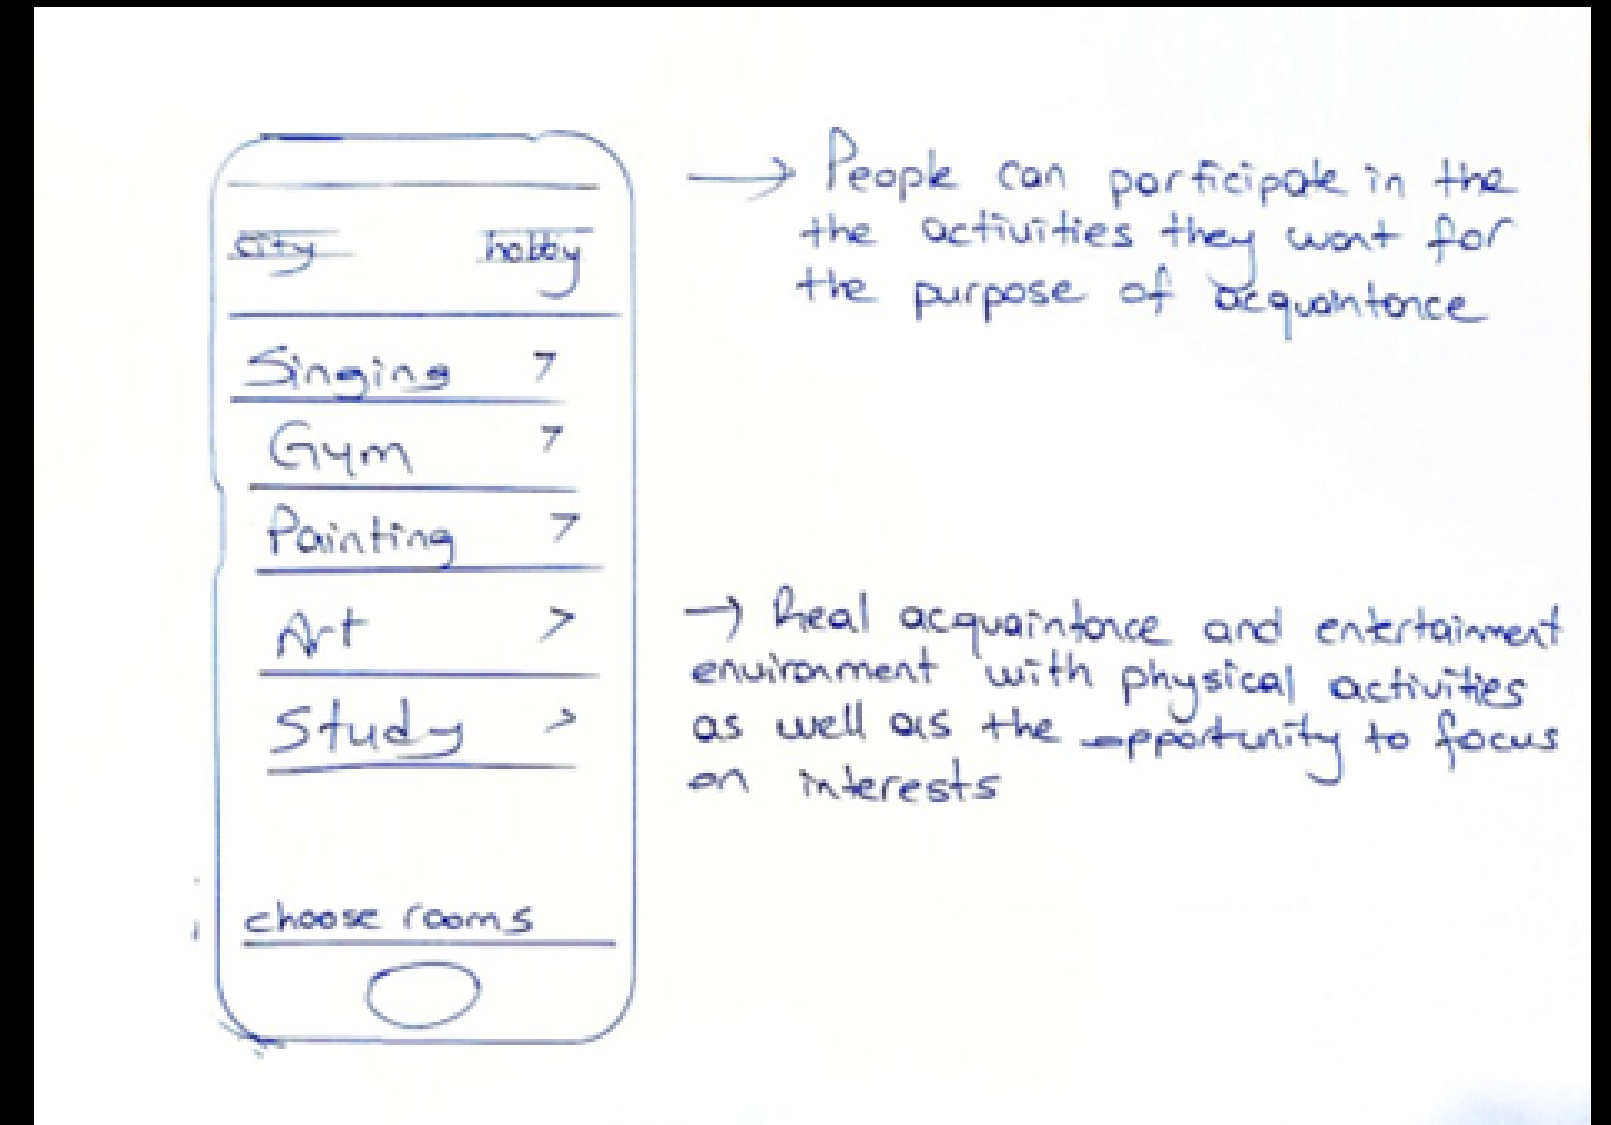 city hobby
Singing >
Gym >
Painting >
Art >
Study >
choose rooms
→ People can participate in the
the activities they want for
the purpose of acquaintance
→ Real acquaintance and entertainment
environment with physical activities
as well as the opportunity to focus
on interests